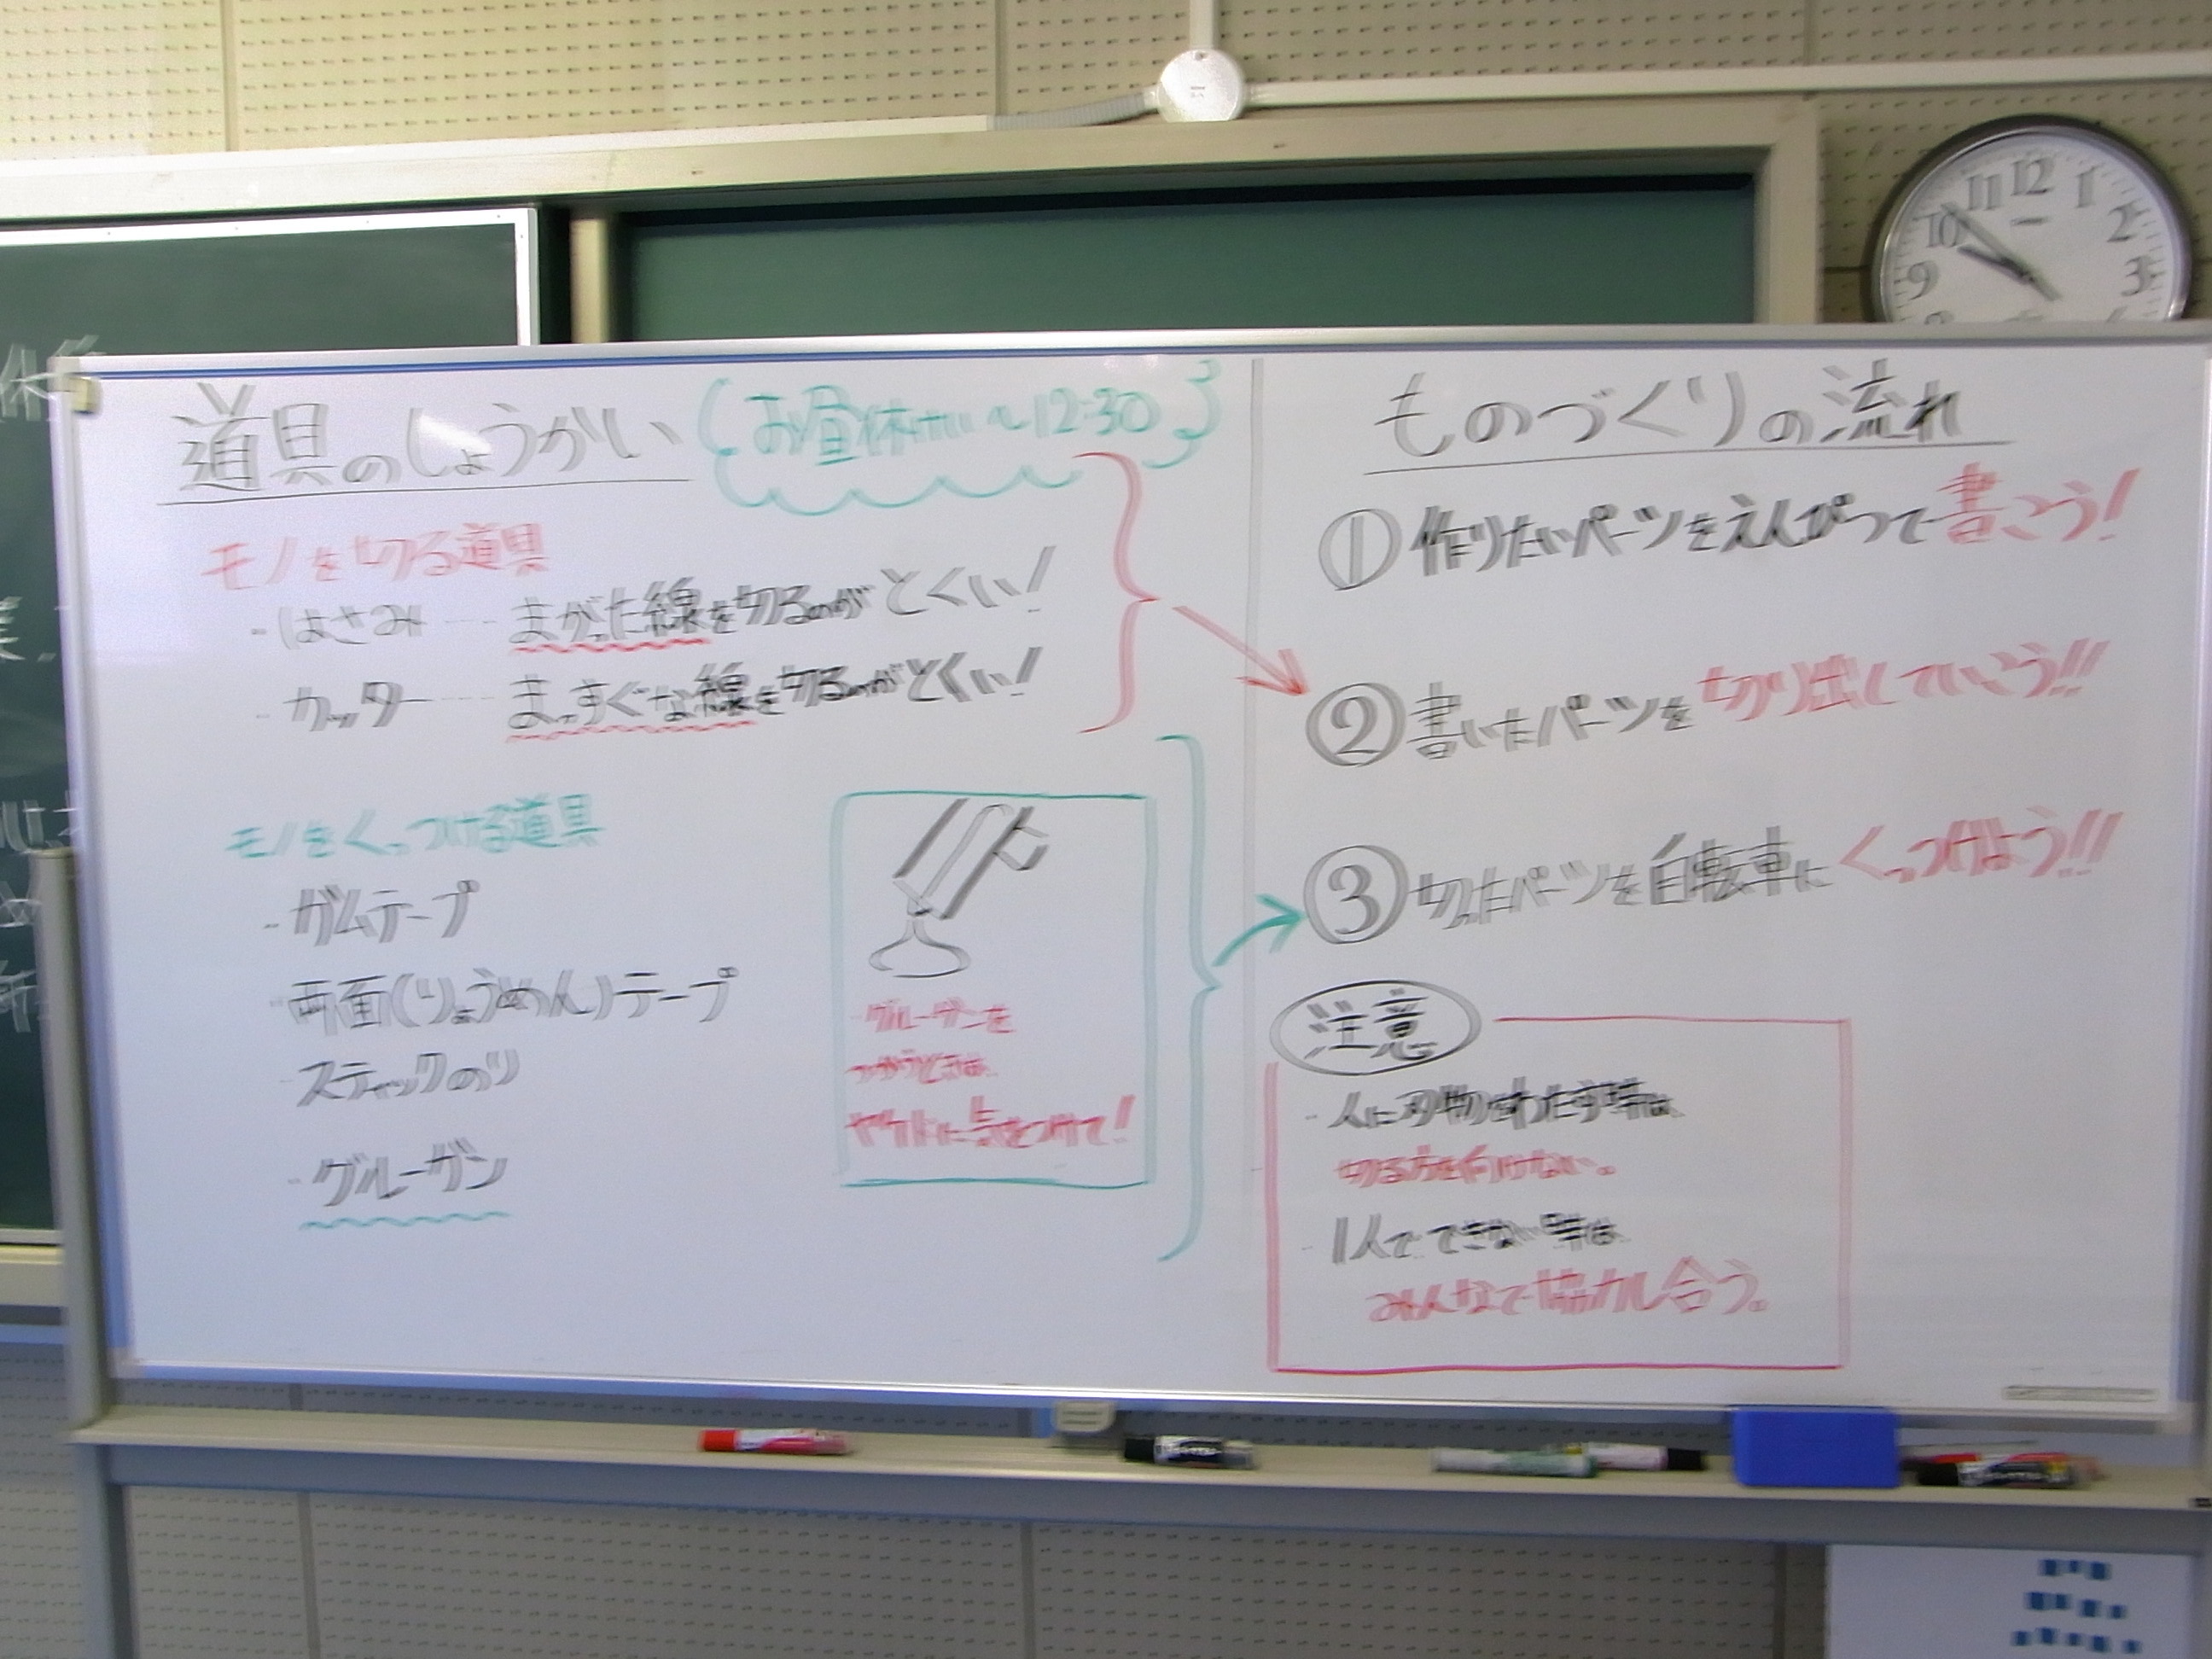 道具のしょうかい
お昼休けい～12:30
モノを切る道具
・はさみ…まがった線を切るのがとくい!
・カッター…まっすぐな線を切るのがとくい!
モノをくっつける道具
・ガムテープ
・両面(りょうめん)テープ
・スティックのり
・グルーガン
・グルーガンを
つかうときは、
ヤケドに気をつけて!
ものづくりの流れ
①作りたいパーツをえんぴつで書こう!
②書いたパーツを切り出していこう!!
③切ったパーツを自転車にくっつけよう!!
注意
・人に刃物をわたす時は
切る方を向けない。
・1人でできない時は
みんなで協力し合う。
10 11 12 1 2 3 9